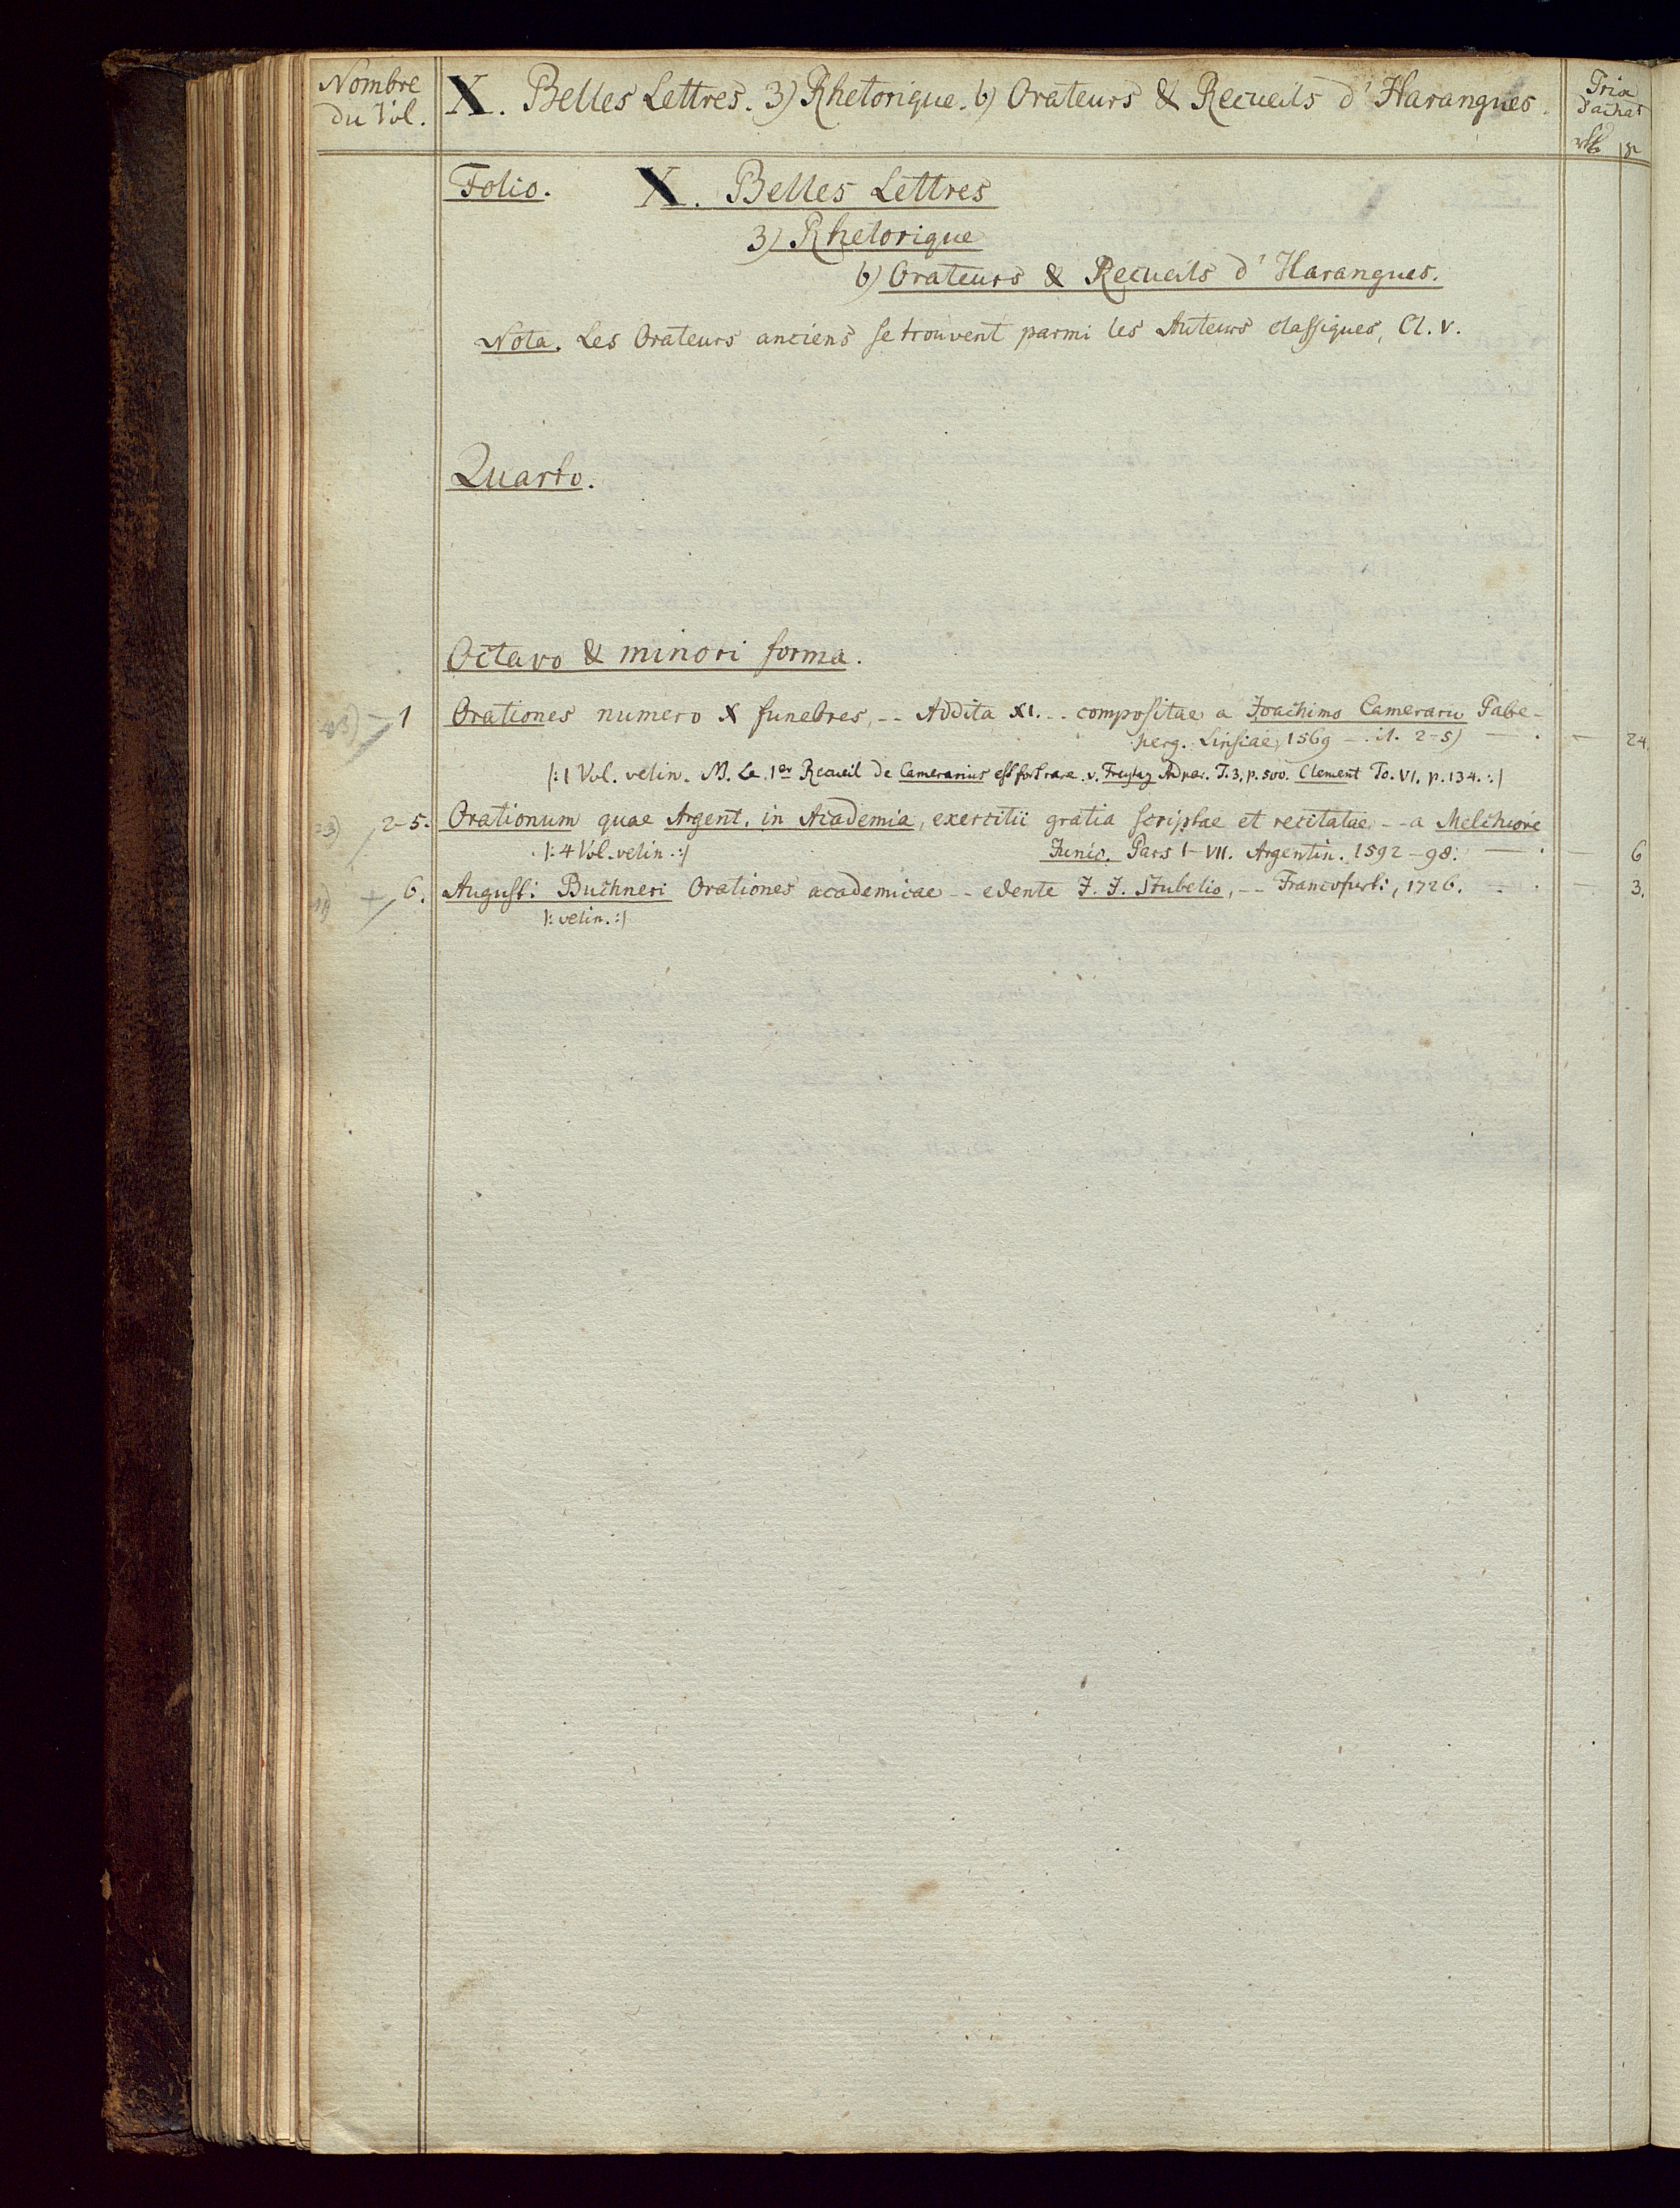 Nombre
du Vol.
X. Belles Lettres. 3) Rhetorique. b) Orateurs & Recueils d'Harangues.
Prix
d'achat
Folio. X. Belles Lettres
3) Rhetorique
b) Orateurs & Recueils d'Harangues.
Nota. Les Orateurs anciens se trouvent parmi les Auteurs classiques, Cl. V.
Quarto.
Octavo & minori forma.
1 Orationes numero X funebres, -- Addita XI. -- compositae a Joachimo Camerario Pabe-
perg. Lipsiae, 1569 -- it. 2-5) — . — 24.
|: 1 Vol. velin. M. Le 1er Recueil de Camerarius est fort rare. v. Freytag Adpar. T. 3. p. 500. Clement To. VI. p. 134. :|
2-5. Orationum quae Argent. in Academia, exercitii gratia scriptae et recitatae -- a Melchiore
|: 4 Vol. velin. :| Junio. Pars I-VII. Argentin. 1592-98. — . 6
6. Augusti Buchneri Orationes academicae -- edente J. J. Stubelio, -- Francofurti, 1726. . . — 3.
|: velin. :|